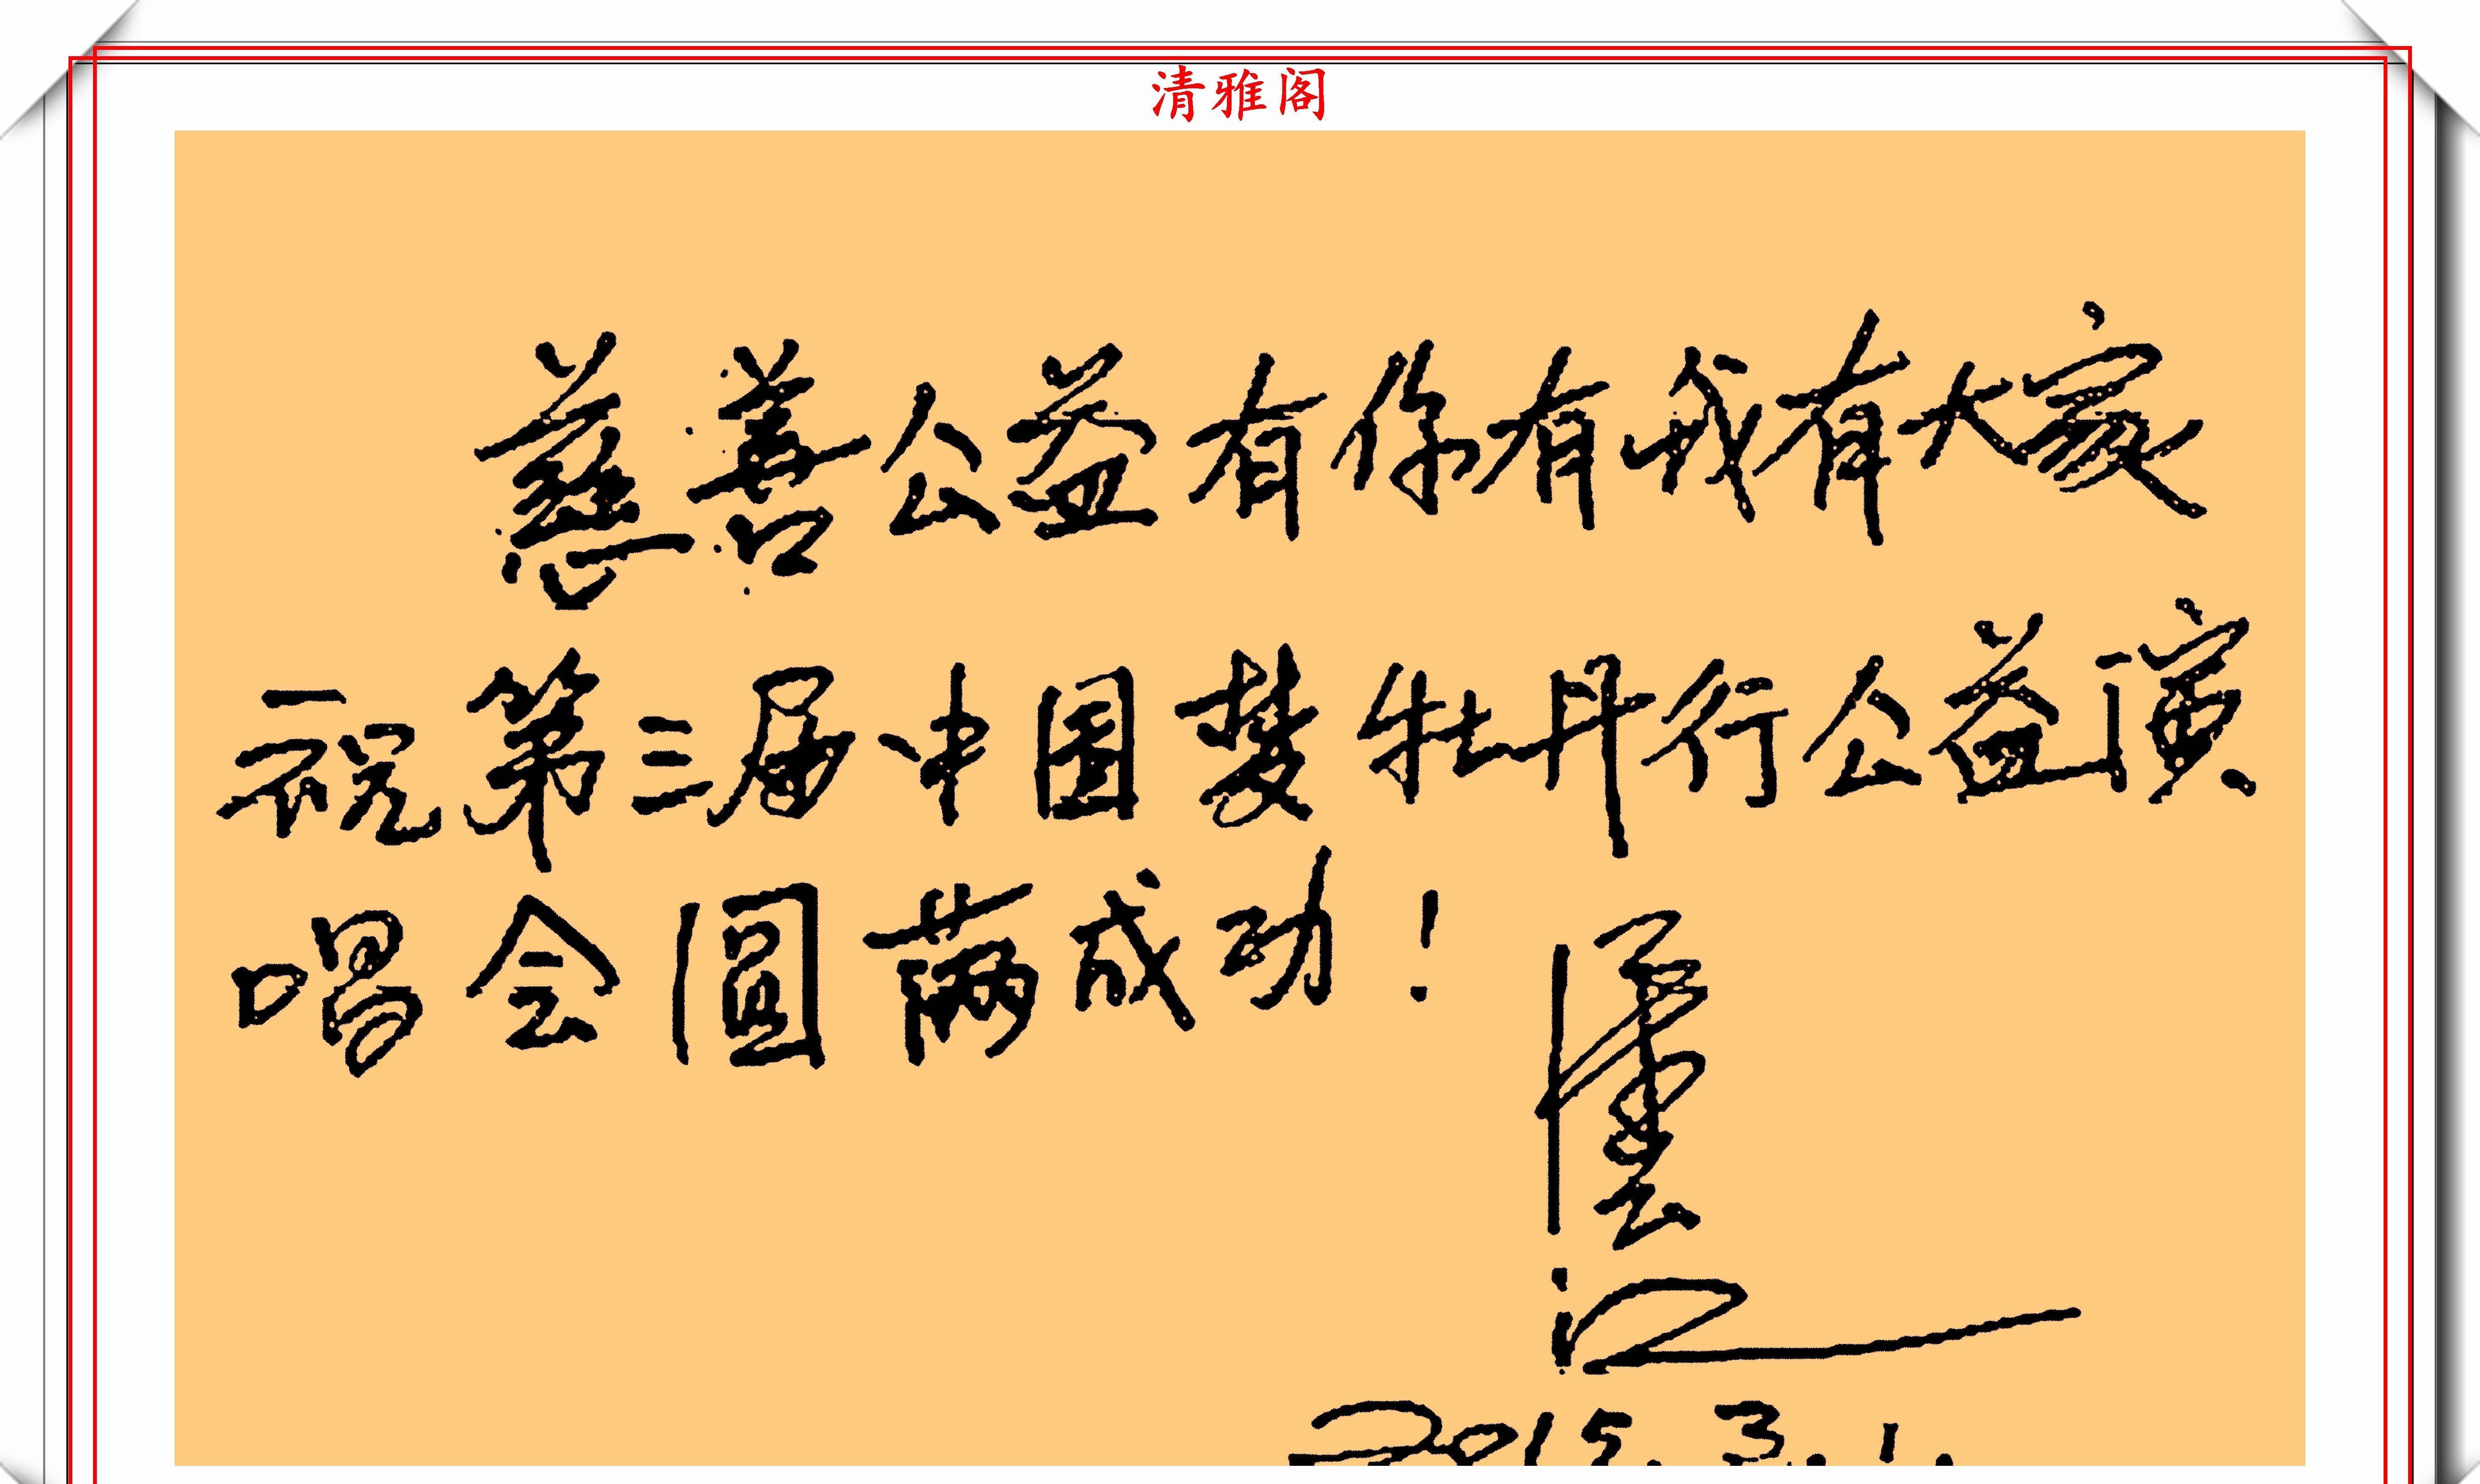 清雅阁
慈善公益有你有我有大家
祝第三届中国梦牡丹行公益演
唱会圆满成功!
2015.3.1.